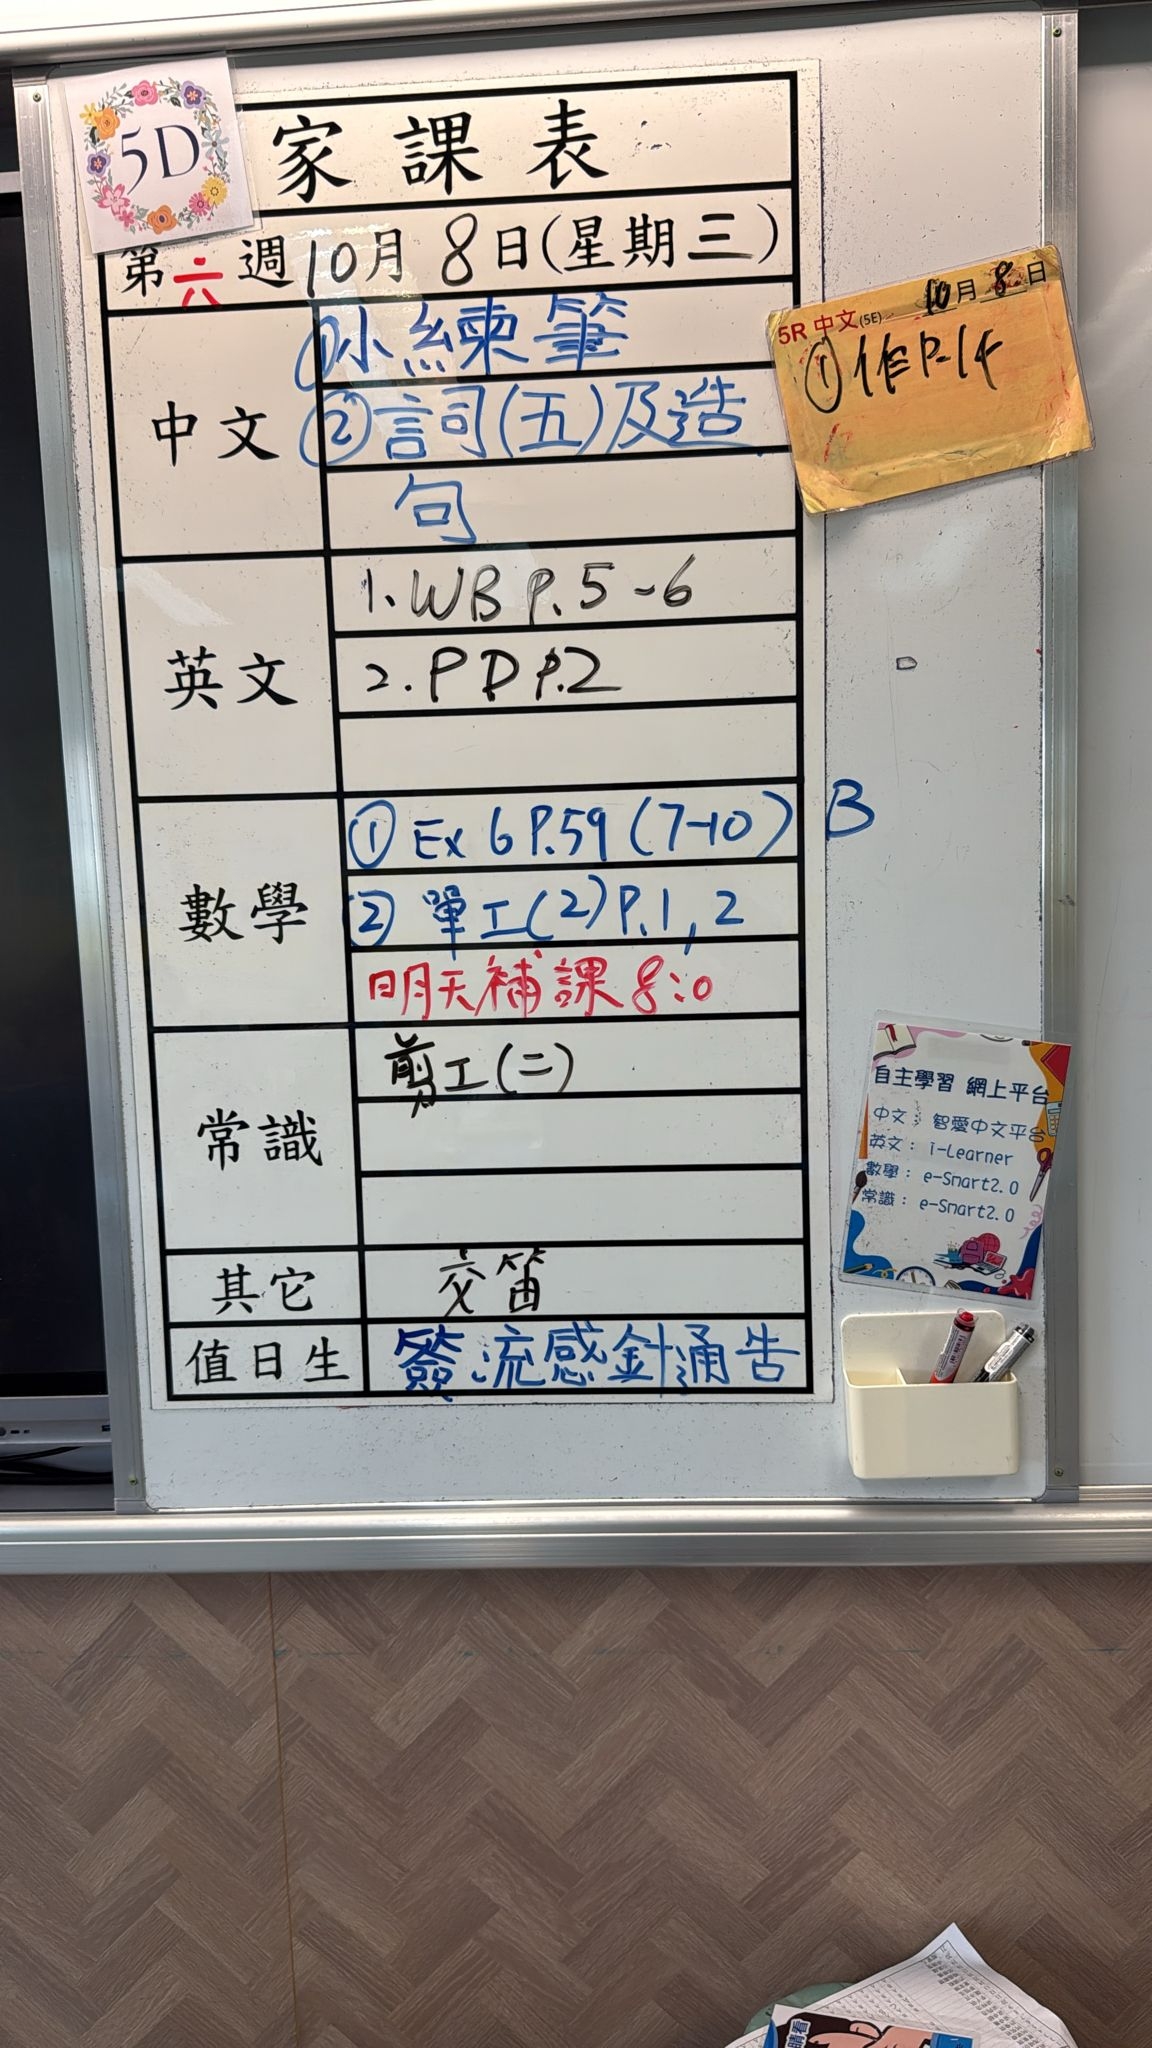 5D
家課表
第六週10月8日(星期三)
中文
①小練筆
②詞(五)及造
句
5R 中文(5E)
10月8日
①作P.14
英文
1. WB P.5-6
2. PD P.2
數學
① Ex 6 P.59 (7-10) B
② 單工(2)P.1, 2
明天補課 8:0
常識
剪工(二)
其它
交笛
值日生
簽流感針通告
自主學習 網上平台
中文: 智愛中文平台
英文: i-Learner
數學: e-Smart2.0
常識: e-Smart2.0
睛看